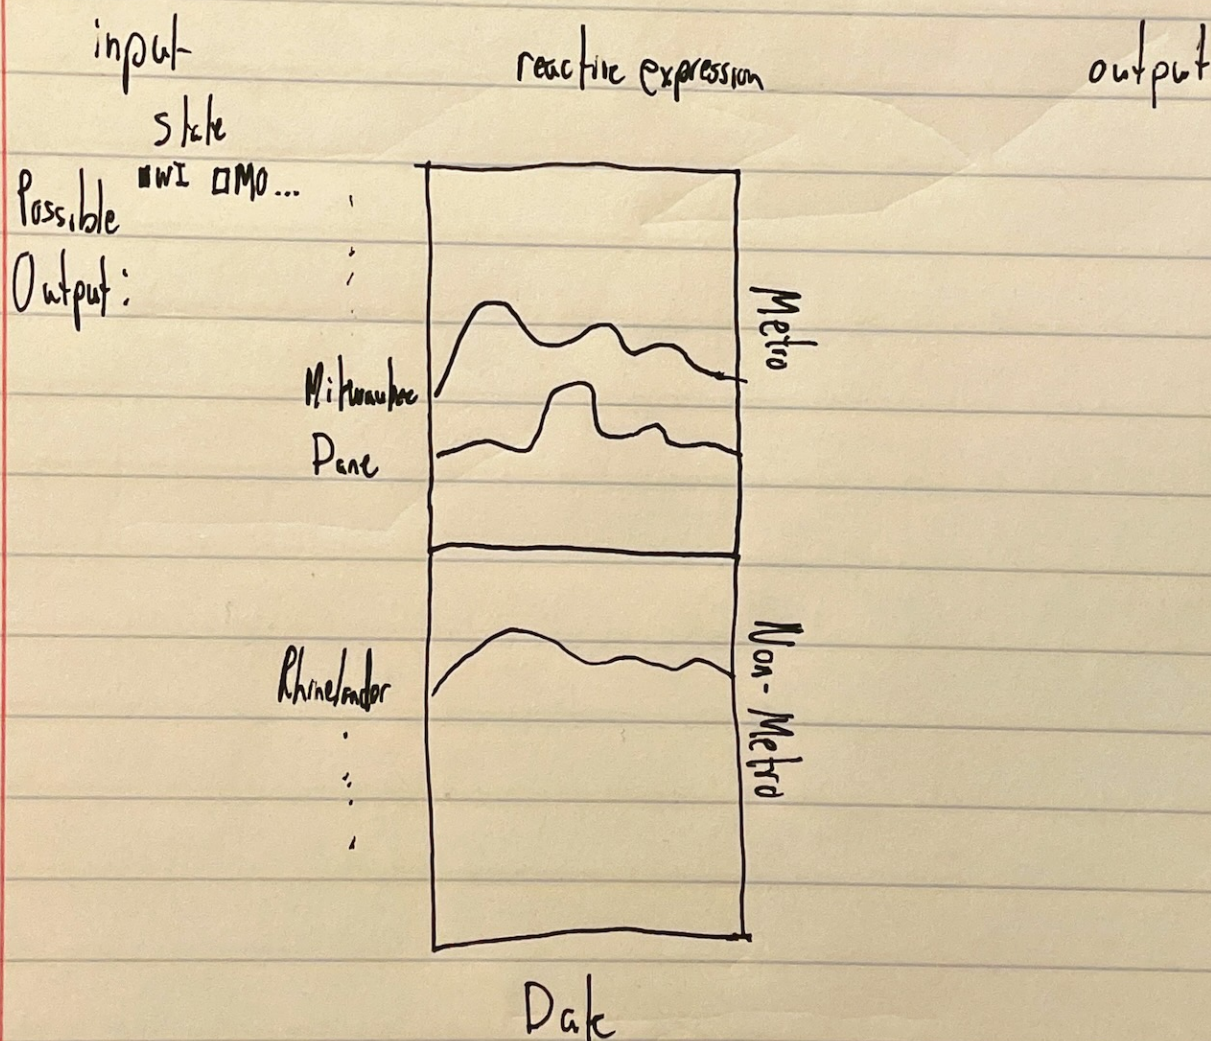 input reactive expression output
state
■WI □MO...
Possible
Output:
Metro
Milwaukee
Dane
Non-Metro
Rhinelander
Date